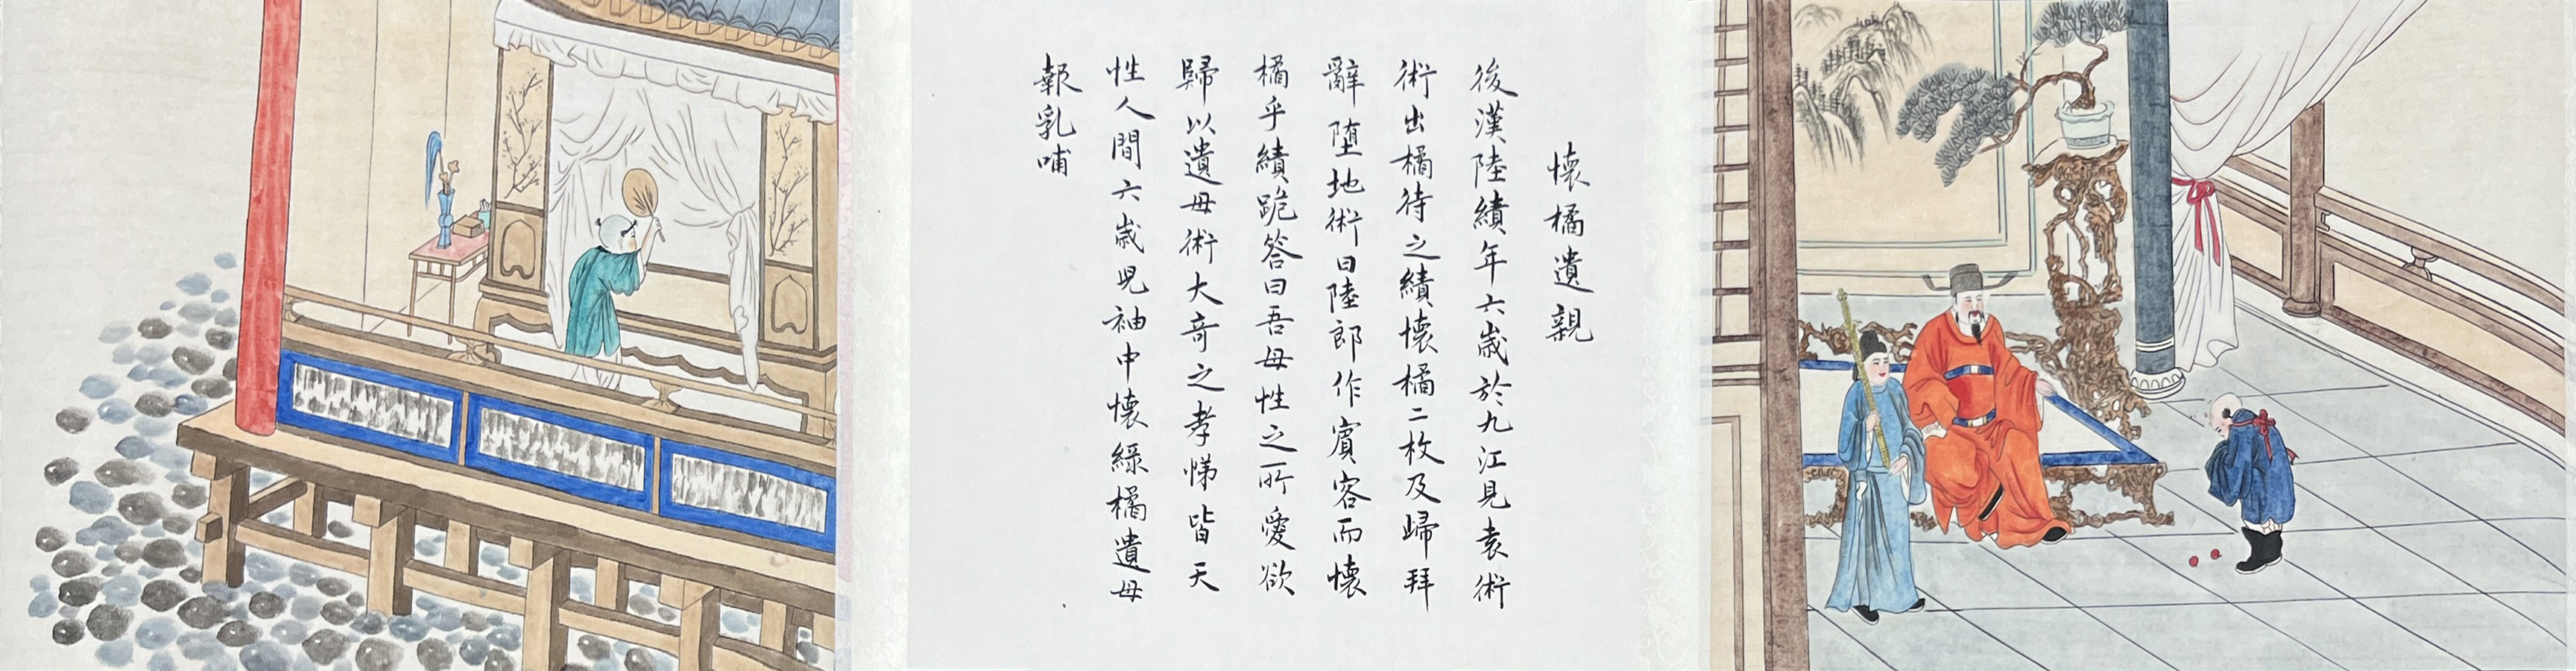 懷橘遺親
後漢陸績年六歲於九江見袁術
術出橘待之績懷橘二枚及歸拜
辭墮地術曰陸郎作賓客而懷
橘乎績跪答曰吾母性之所愛欲
歸以遺母術大奇之孝悌皆天
性人間六歲兒袖中懷綠橘遺母
報乳哺